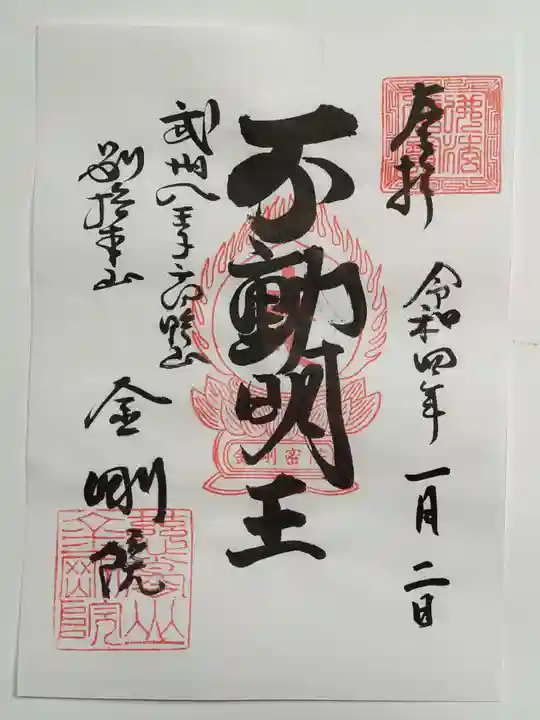 奉拝
令和四年一月二日
不動明王
武州八王子
別格本山
金剛院